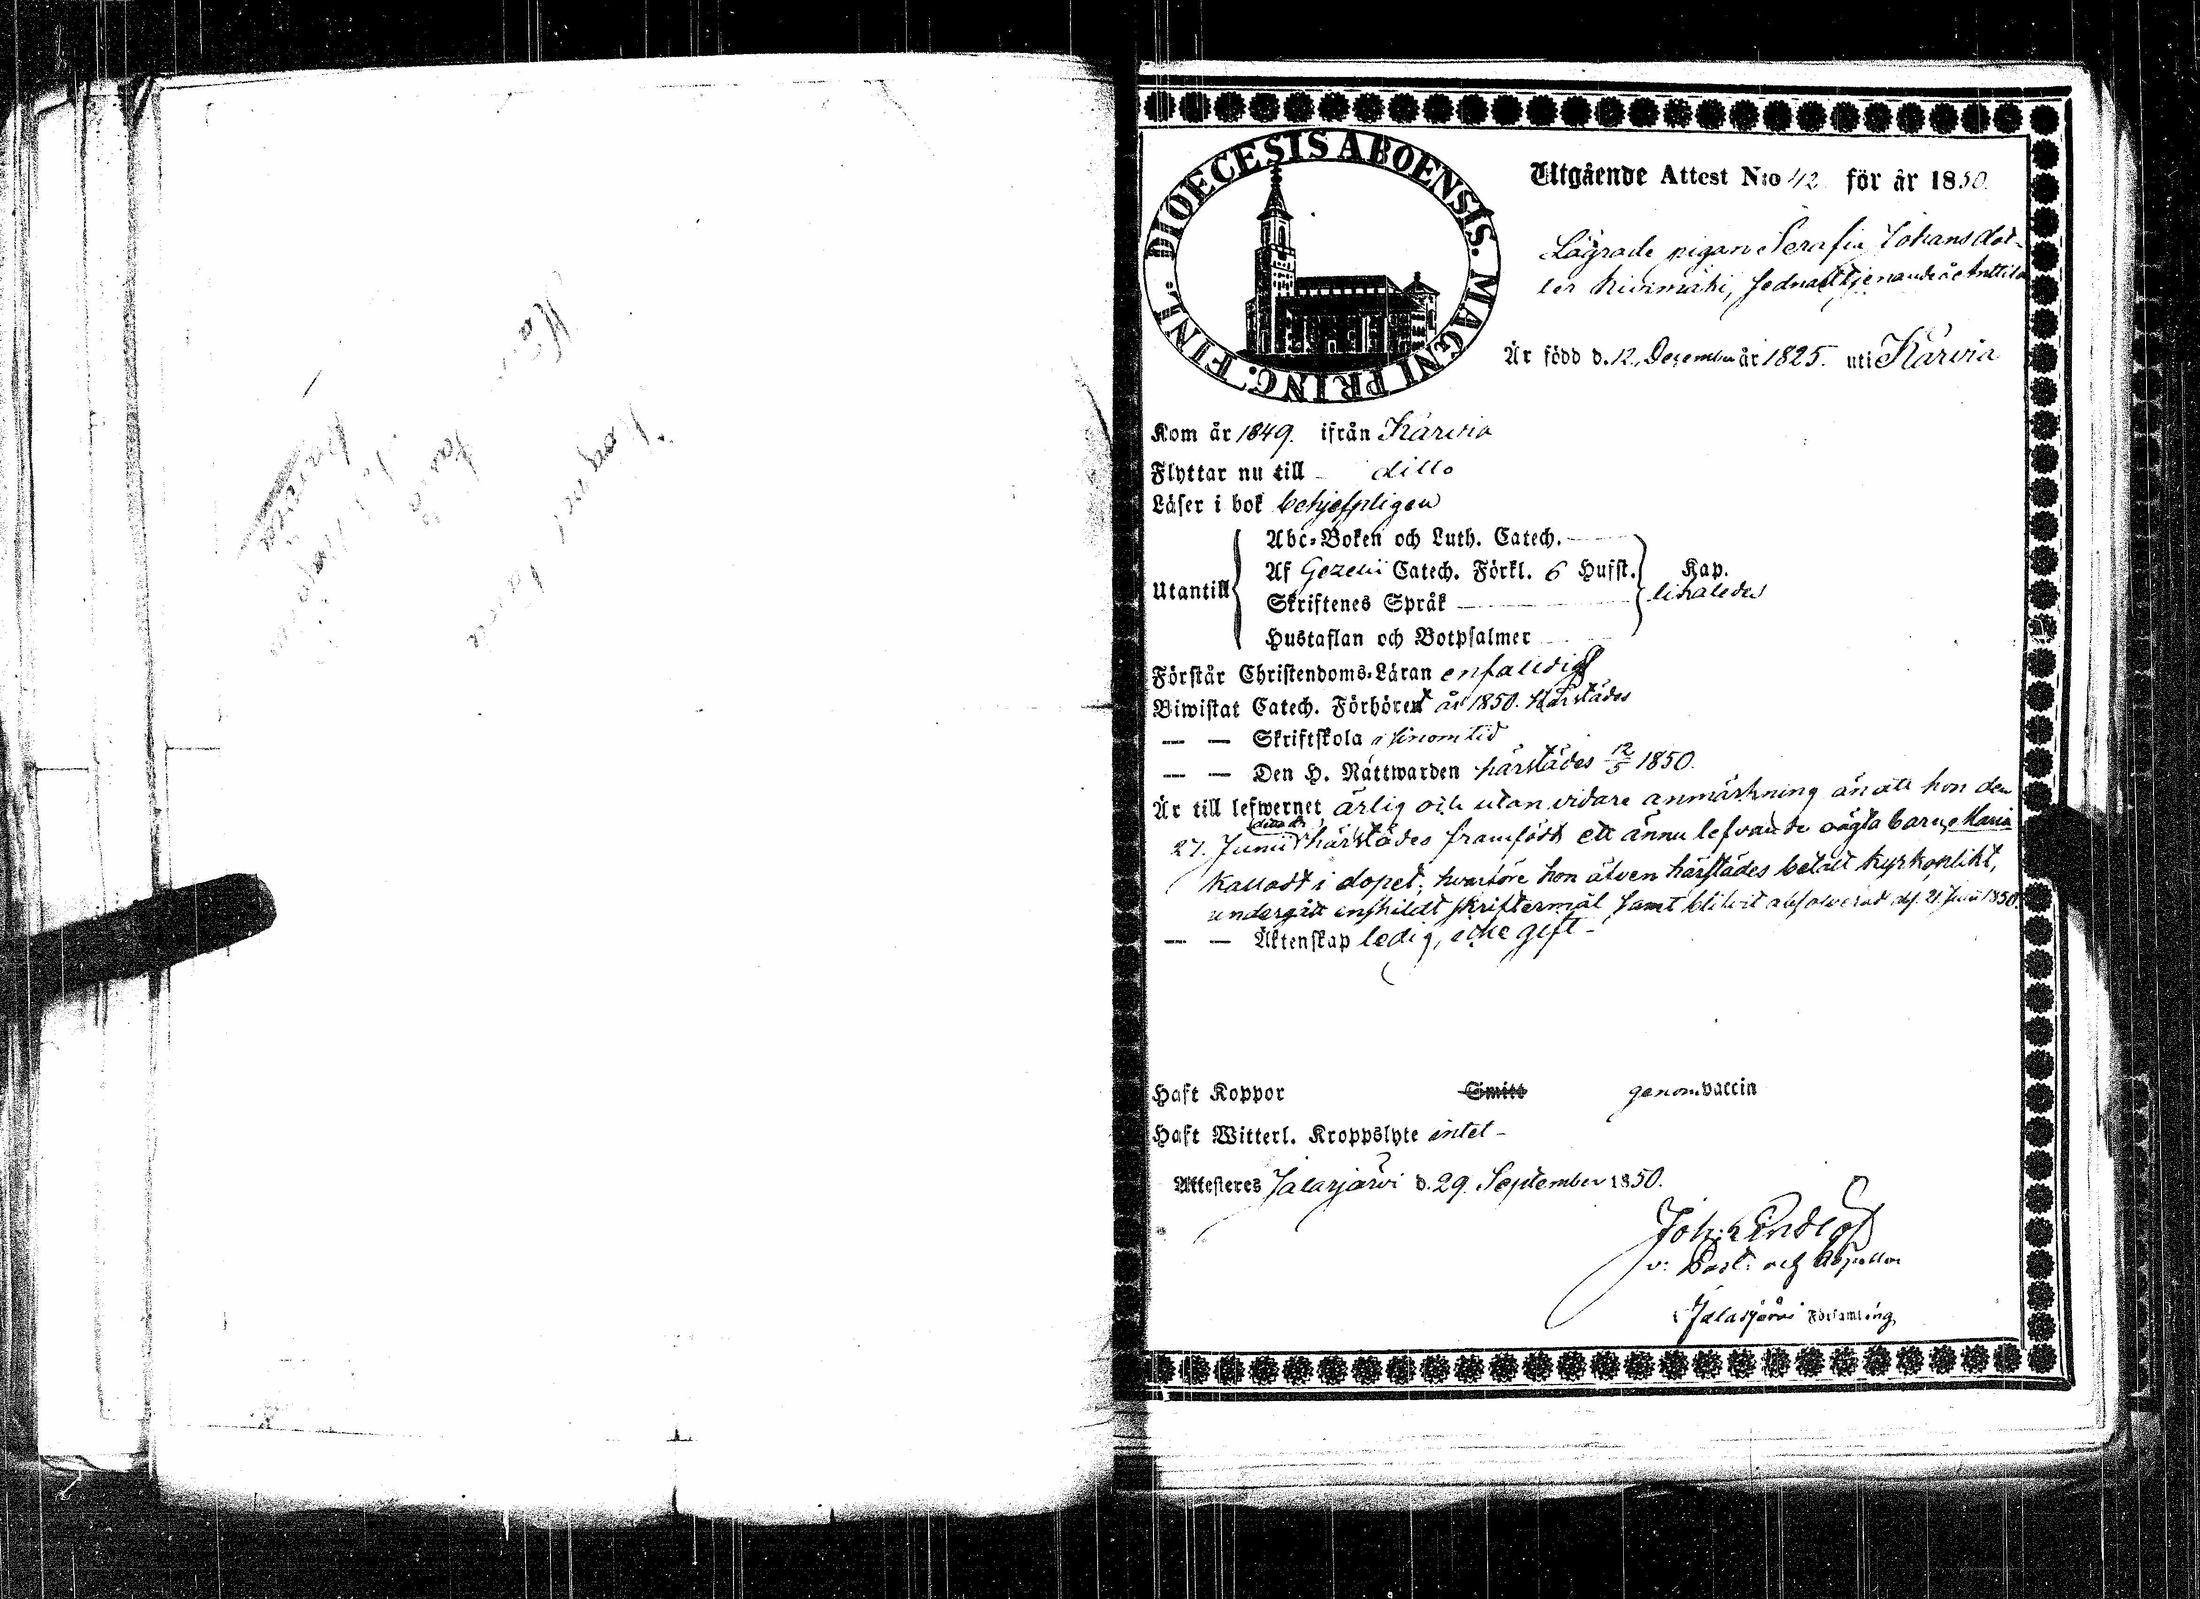 DIOECESIS ABOENSIS. MAGNI PRINC. FINL.
Utgående Attest N:o 42 för år 1850.
Lägrade pigan Serafia Johansdot-
ter Kivimäki, sednast tjenande å Anttila
Är född d. 12. December år 1825. uti Karvia
Kom år 1849. ifrån Karvia
Flyttar nu till ditto
Läser i bok behjelpligen
Utantill
Abc-Boken och Luth. Catech.
Af Gezelii Catech. Förkl. 6 Hufst. Kap.
Skriftenes Språk likaledes
Hustaflan och Botpsalmer
Förstår Christendoms-Läran enfaldigt
Biwistat Catech. Förhöret år 1850. härstädes
— — Skriftskola i sinom tid
— — Den H. Nattwarden härstädes 12/5 1850.
Är till lefwernet ärlig och utan vidare anmärkning än att hon den
27. Junii härstädes framfödt ett ännu lefvande oägta barn, Maria
kalladt i dopet; hvarföre hon äfven härstädes betalt kyrkoplikt,
undergått enskildt skriftermål samt blifvit absolverad d. 21 1850.
— — Äktenskap ledig, icke gift -
Haft Koppor Smitt genom vaccin
Haft Witterl. Kroppslyte intet -
Attesteres Jalasjärvi d. 29. September 1850.
Joh: Lindlöf
v: Past: och
i Jalasjärvi Församling